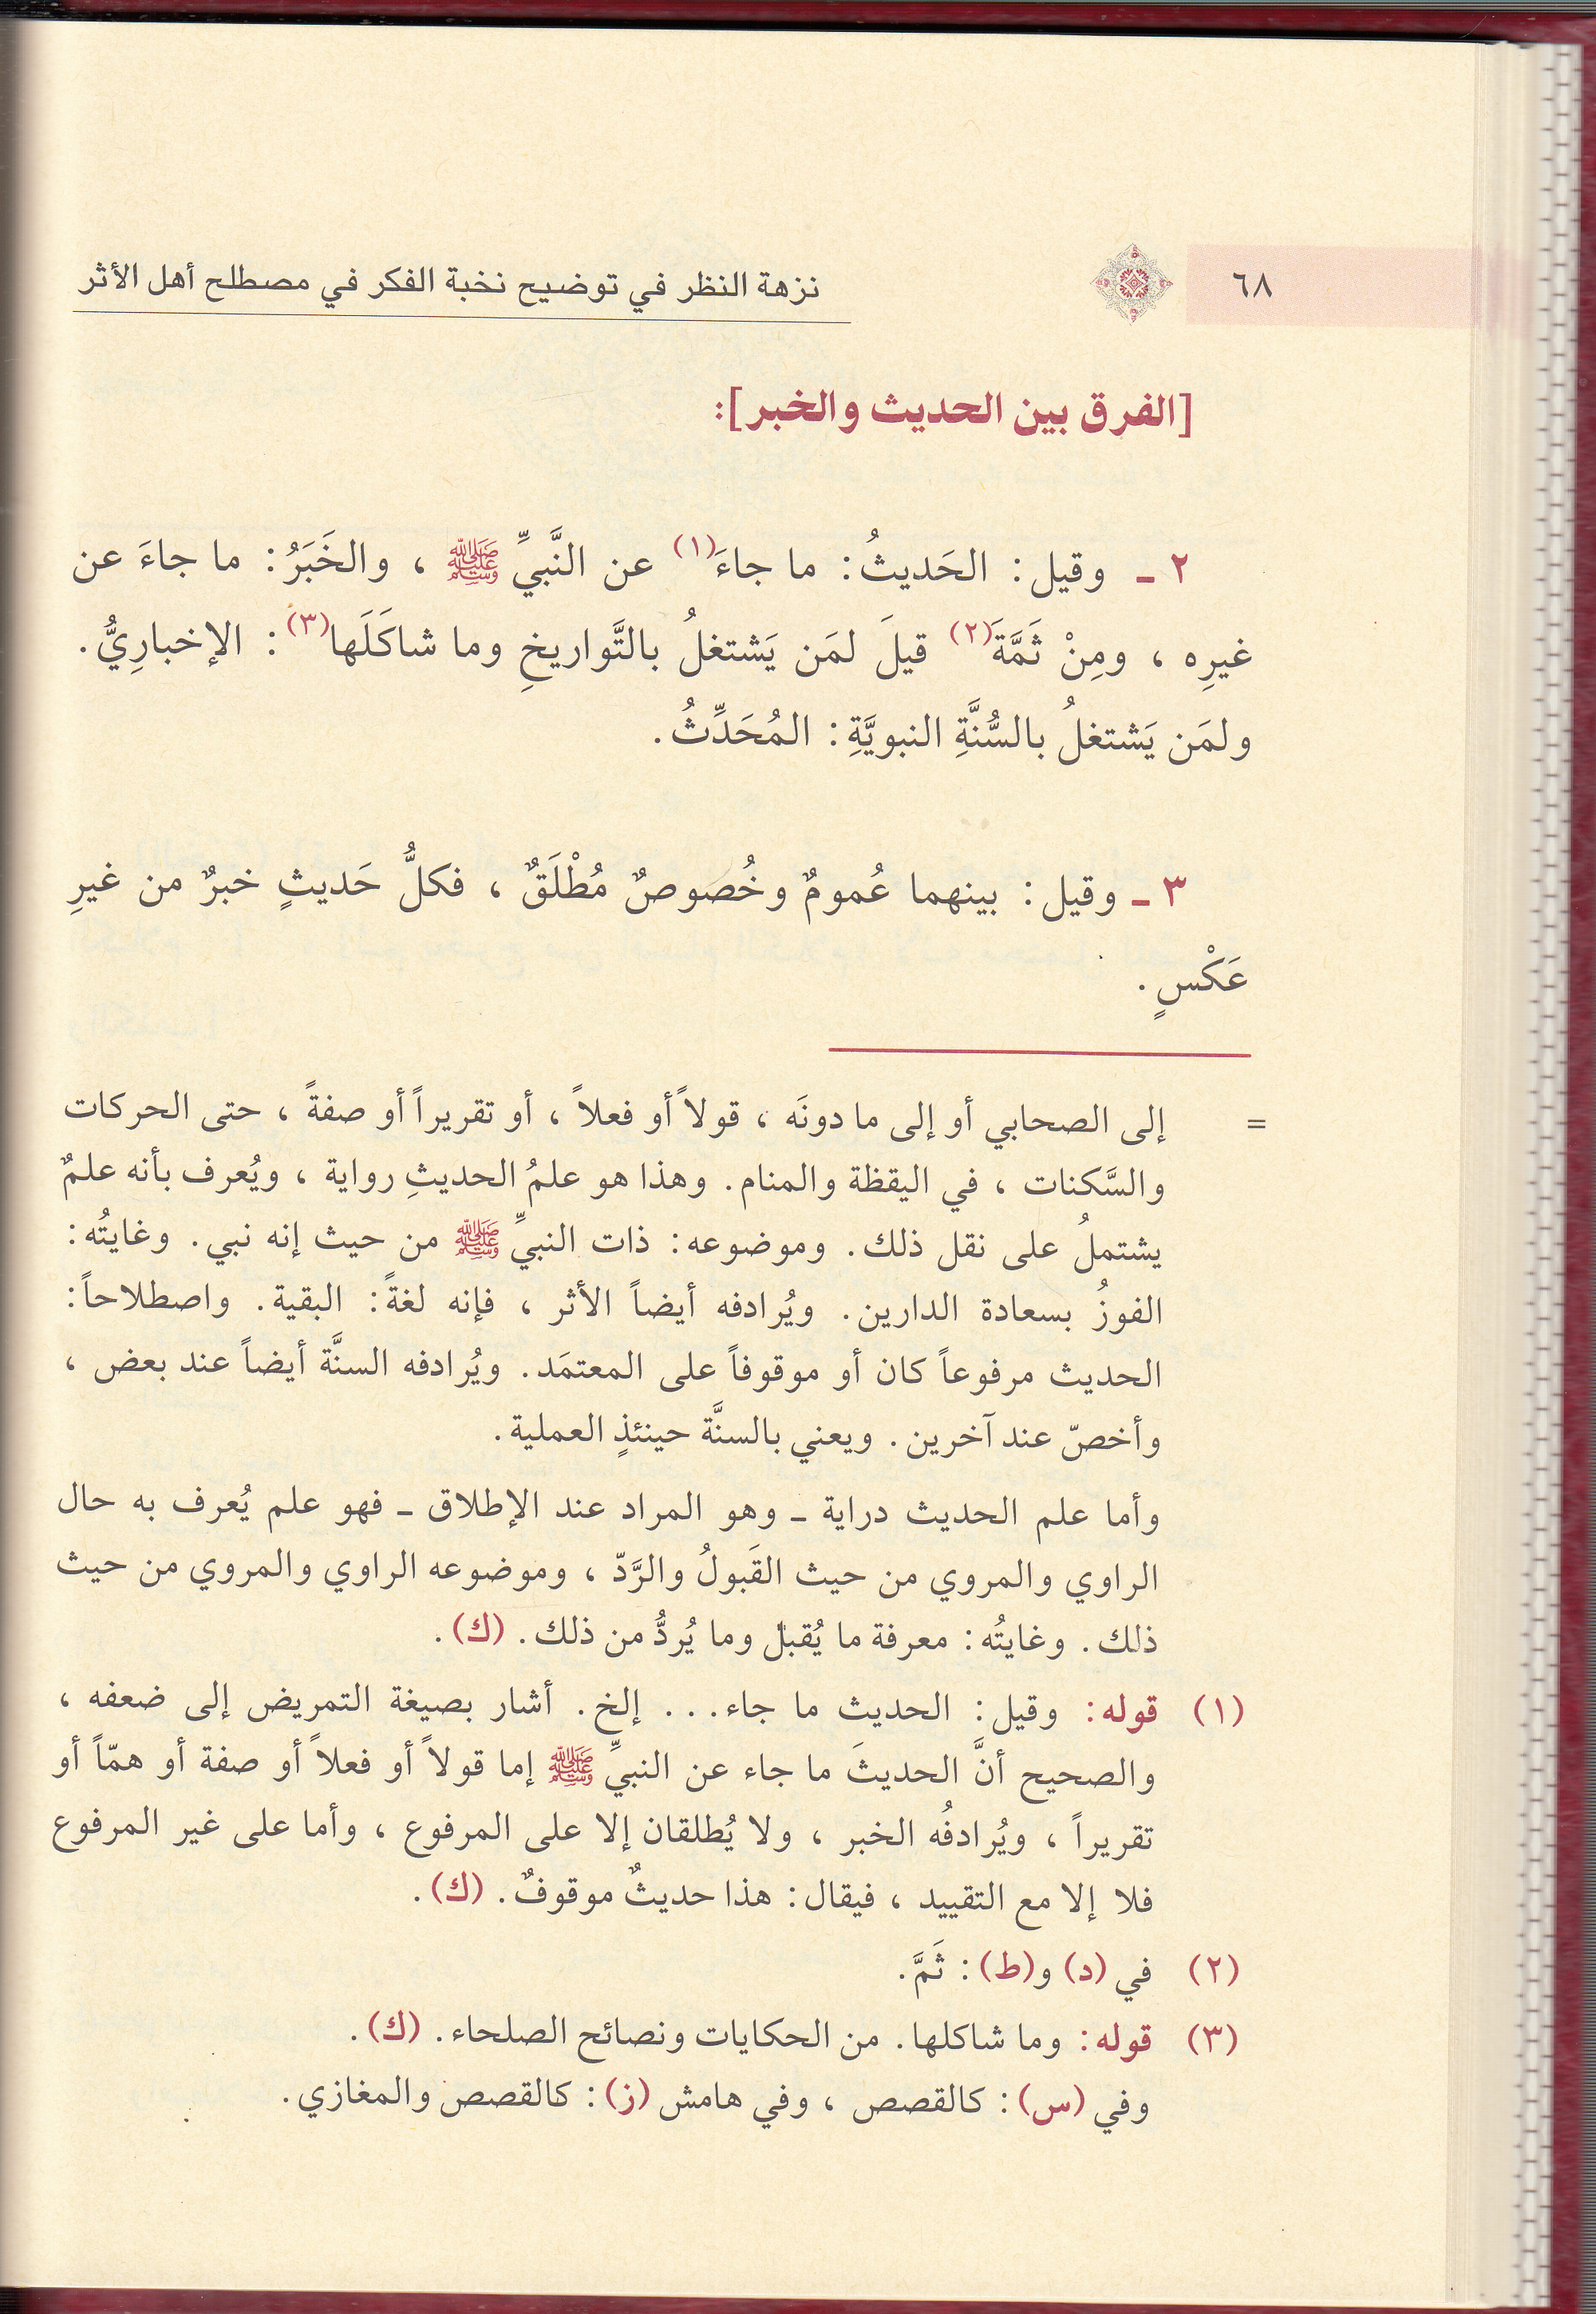 ٦٨
نزهة النظر في توضيح نخبة الفكر في مصطلح أهل الأثر
[الفرق بين الحديث والخبر]:
٢ ـ وقيل: الحَديثُ: ما جاءَ(١) عن النَّبيِّ ﷺ ، والخَبَرُ: ما جاءَ عن
غيرِه ، ومِنْ ثَمَّةَ(٢) قيلَ لمَن يَشتغلُ بالتَّواريخِ وما شاكَلَها(٣): الإخبارِيُّ.
ولمَن يَشتغلُ بالسُّنَّةِ النبويَّةِ: المُحَدِّثُ.
٣ ـ وقيل: بينهما عُمومٌ وخُصوصٌ مُطْلَقٌ ، فكلُّ حَديثٍ خبرٌ من غيرِ
عَكْسٍ.
= إلى الصحابي أو إلى ما دونَه ، قولاً أو فعلاً ، أو تقريراً أو صفةً ، حتى الحركات
والسَّكنات ، في اليقظة والمنام. وهذا هو علمُ الحديثِ رواية ، ويُعرف بأنه علمٌ
يشتملُ على نقل ذلك. وموضوعه: ذات النبيِّ ﷺ من حيث إنه نبي. وغايتُه:
الفوزُ بسعادة الدارين. ويُرادفه أيضاً الأثر ، فإنه لغةً: البقية. واصطلاحاً:
الحديث مرفوعاً كان أو موقوفاً على المعتمَد. ويُرادفه السنَّة أيضاً عند بعض ،
وأخصّ عند آخرين. ويعني بالسنَّة حينئذٍ العملية.
وأما علم الحديث دراية ـ وهو المراد عند الإطلاق ـ فهو علم يُعرف به حال
الراوي والمروي من حيث القَبولُ والرَّدّ ، وموضوعه الراوي والمروي من حيث
ذلك. وغايتُه: معرفة ما يُقبل وما يُردُّ من ذلك. (ك).
(١) قوله: وقيل: الحديث ما جاء... إلخ. أشار بصيغة التمريض إلى ضعفه ،
والصحيح أنَّ الحديثَ ما جاء عن النبيِّ ﷺ إما قولاً أو فعلاً أو صفة أو همّاً أو
تقريراً ، ويُرادفُه الخبر ، ولا يُطلقان إلا على المرفوع ، وأما على غير المرفوع
فلا إلا مع التقييد ، فيقال: هذا حديثٌ موقوفٌ. (ك).
(٢) في (د) و(ط): ثَمَّ.
(٣) قوله: وما شاكلها. من الحكايات ونصائح الصلحاء. (ك).
وفي (س): كالقصص ، وفي هامش (ز): كالقصص والمغازي.